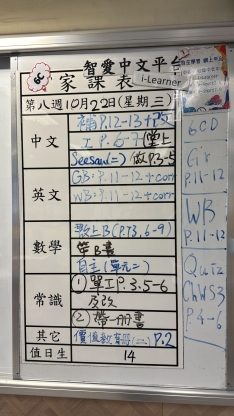 智愛中文平台
家課表
i-Learner
第八週10月22日(星期三)
中文
補P.12-13+改
工P.6-7(堂上)
Seesaw(二)(做P.3-5
英文
GB: P.11-12+corr
WB: P.11-12+corr
數學
數上B(P.73, 6-9)
帶B書
常識
自主(單元二)
①單工P.3.5-6
及改
②帶一冊書
其它
價值教育冊(二)P.2
值日生
14
6CD
P.11-12
WB
P.11-12
Quiz
Ch WS3
P.4-6